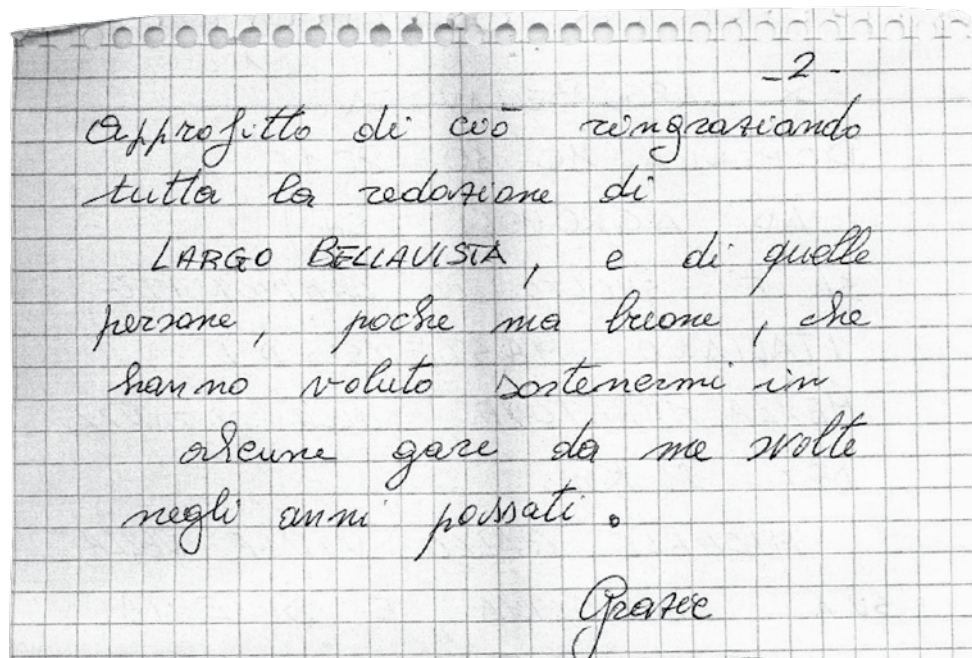 - 2 -
Approfitto di ciò ringraziando
tutta la redazione di
LARGO BELLAVISTA, e di quelle
persone, poche ma buone, che
hanno voluto sostenermi in
alcune gare da me svolte
negli anni passati.
Grazie